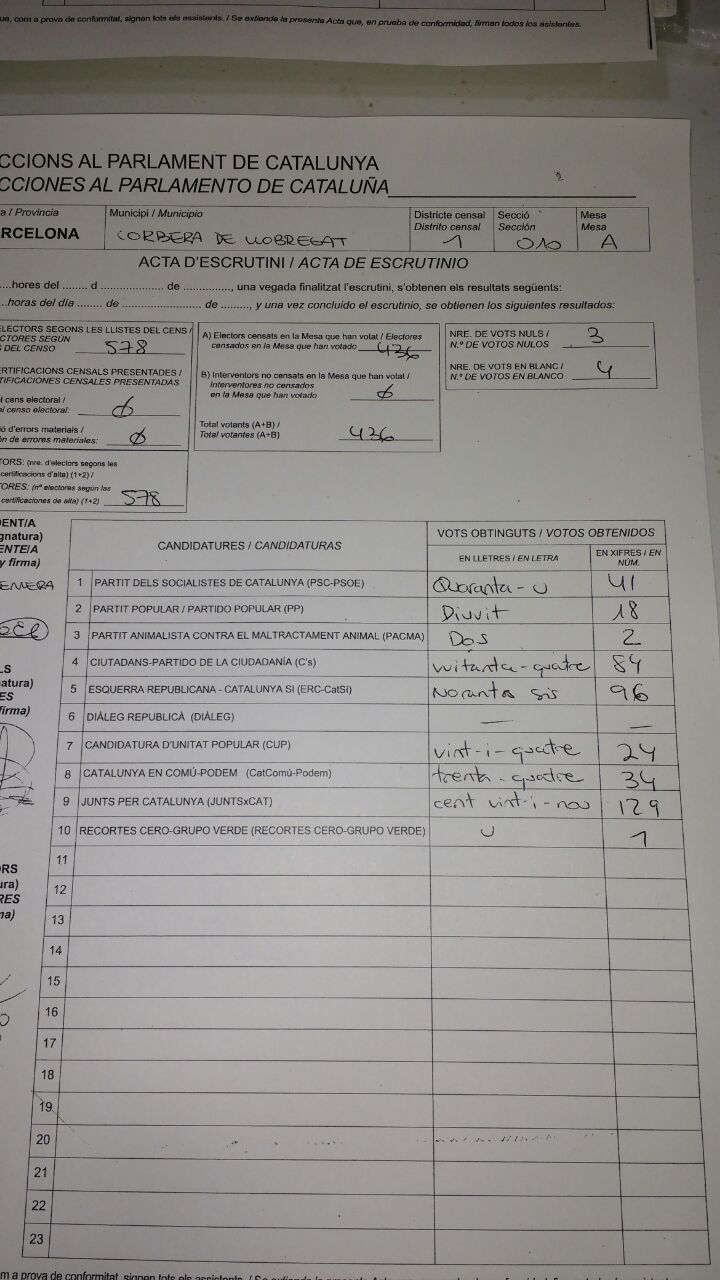 ue, com a prova de conformitat, signen tots els assistents. / Se extiende la presente Acta que, en prueba de conformidad, firman todos los asistentes.
CCIONS AL PARLAMENT DE CATALUNYA
CCIONES AL PARLAMENTO DE CATALUÑA
a / Provincia
RCELONA
Municipi / Municipio
CORBERA DE LLOBREGAT
Districte censal
Distrito censal
1
Secció
Sección
010
Mesa
Mesa
A
ACTA D'ESCRUTINI / ACTA DE ESCRUTINIO
....hores del ....... d ..................... de .............., una vegada finalitzat l'escrutini, s'obtenen els resultats següents:
..horas del día ........ de ........................ de ........., y una vez concluido el escrutinio, se obtienen los siguientes resultados:
ELECTORS SEGONS LES LLISTES DEL CENS /
CTORES SEGÚN
S DEL CENSO 578
ERTIFICACIONS CENSALS PRESENTADES /
TIFICACIONES CENSALES PRESENTADAS
l cens electoral /
l censo electoral: 0
ó d'errors materials /
ón de errores materiales: 0
TORS: (nre. d'electors segons les
certificacions d'alta) (1+2) /
TORES: (nº electores según las
certificaciones de alta) (1+2) 578
A) Electors censats en la Mesa que han votat / Electores
censados en la Mesa que han votado 436
B) Interventors no censats en la Mesa que han votat /
Interventores no censados
en la Mesa que han votado 0
Total votants (A+B) /
Total votantes (A+B) 436
NRE. DE VOTS NULS /
N.º DE VOTOS NULOS 3
NRE. DE VOTS EN BLANC /
N.º DE VOTOS EN BLANCO 4
DENT/A
gnatura)
ENTE/A
y firma)
LS
natura)
ES
firma)
ORS
ura)
RES
ma)
CANDIDATURES / CANDIDATURAS
VOTS OBTINGUTS / VOTOS OBTENIDOS
EN LLETRES / EN LETRA
EN XIFRES / EN NÚM.
1 PARTIT DELS SOCIALISTES DE CATALUNYA (PSC-PSOE) Quaranta-u 41
2 PARTIT POPULAR / PARTIDO POPULAR (PP) Divuit 18
3 PARTIT ANIMALISTA CONTRA EL MALTRACTAMENT ANIMAL (PACMA) Dos 2
4 CIUTADANS-PARTIDO DE LA CIUDADANÍA (C's) vuitanta-quatre 84
5 ESQUERRA REPUBLICANA - CATALUNYA SI (ERC-CatSí) Noranta sis 96
6 DIÀLEG REPUBLICÀ (DIÀLEG) — —
7 CANDIDATURA D'UNITAT POPULAR (CUP) vint-i-quatre 24
8 CATALUNYA EN COMÚ-PODEM (CatComú-Podem) trenta-quatre 34
9 JUNTS PER CATALUNYA (JUNTSxCAT) cent vint-i-nou 129
10 RECORTES CERO-GRUPO VERDE (RECORTES CERO-GRUPO VERDE) U 1
11
12
13
14
15
16
17
18
19
20
21
22
23